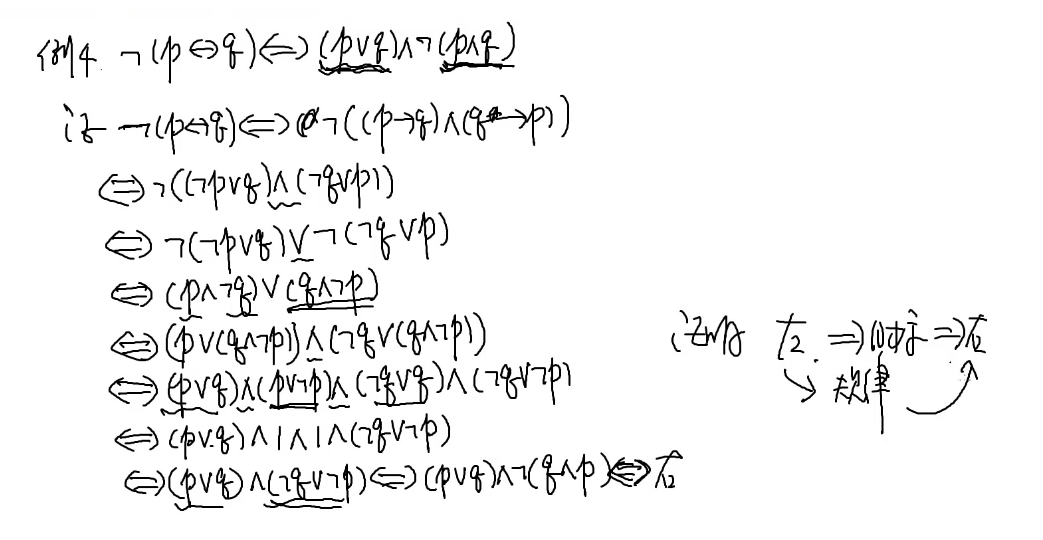 例4. ¬(p⇔q)⇔(p∨q)∧¬(p∧q)
证 ¬(p↔q)⇔¬((p→q)∧(q→p))
⇔¬((¬p∨q)∧(¬q∨p))
⇔¬(¬p∨q)∨¬(¬q∨p)
⇔(p∧¬q)∨(q∧¬p)
⇔(p∨(q∧¬p))∧(¬q∨(q∧¬p))
⇔(p∨q)∧(p∨¬p)∧(¬q∨q)∧(¬q∨¬p)
⇔(p∨q)∧1∧1∧(¬q∨¬p)
⇔(p∨q)∧(¬q∨¬p)⇔(p∨q)∧¬(q∧p)⇔右
证明 左 ⇒ ⇒右
规律